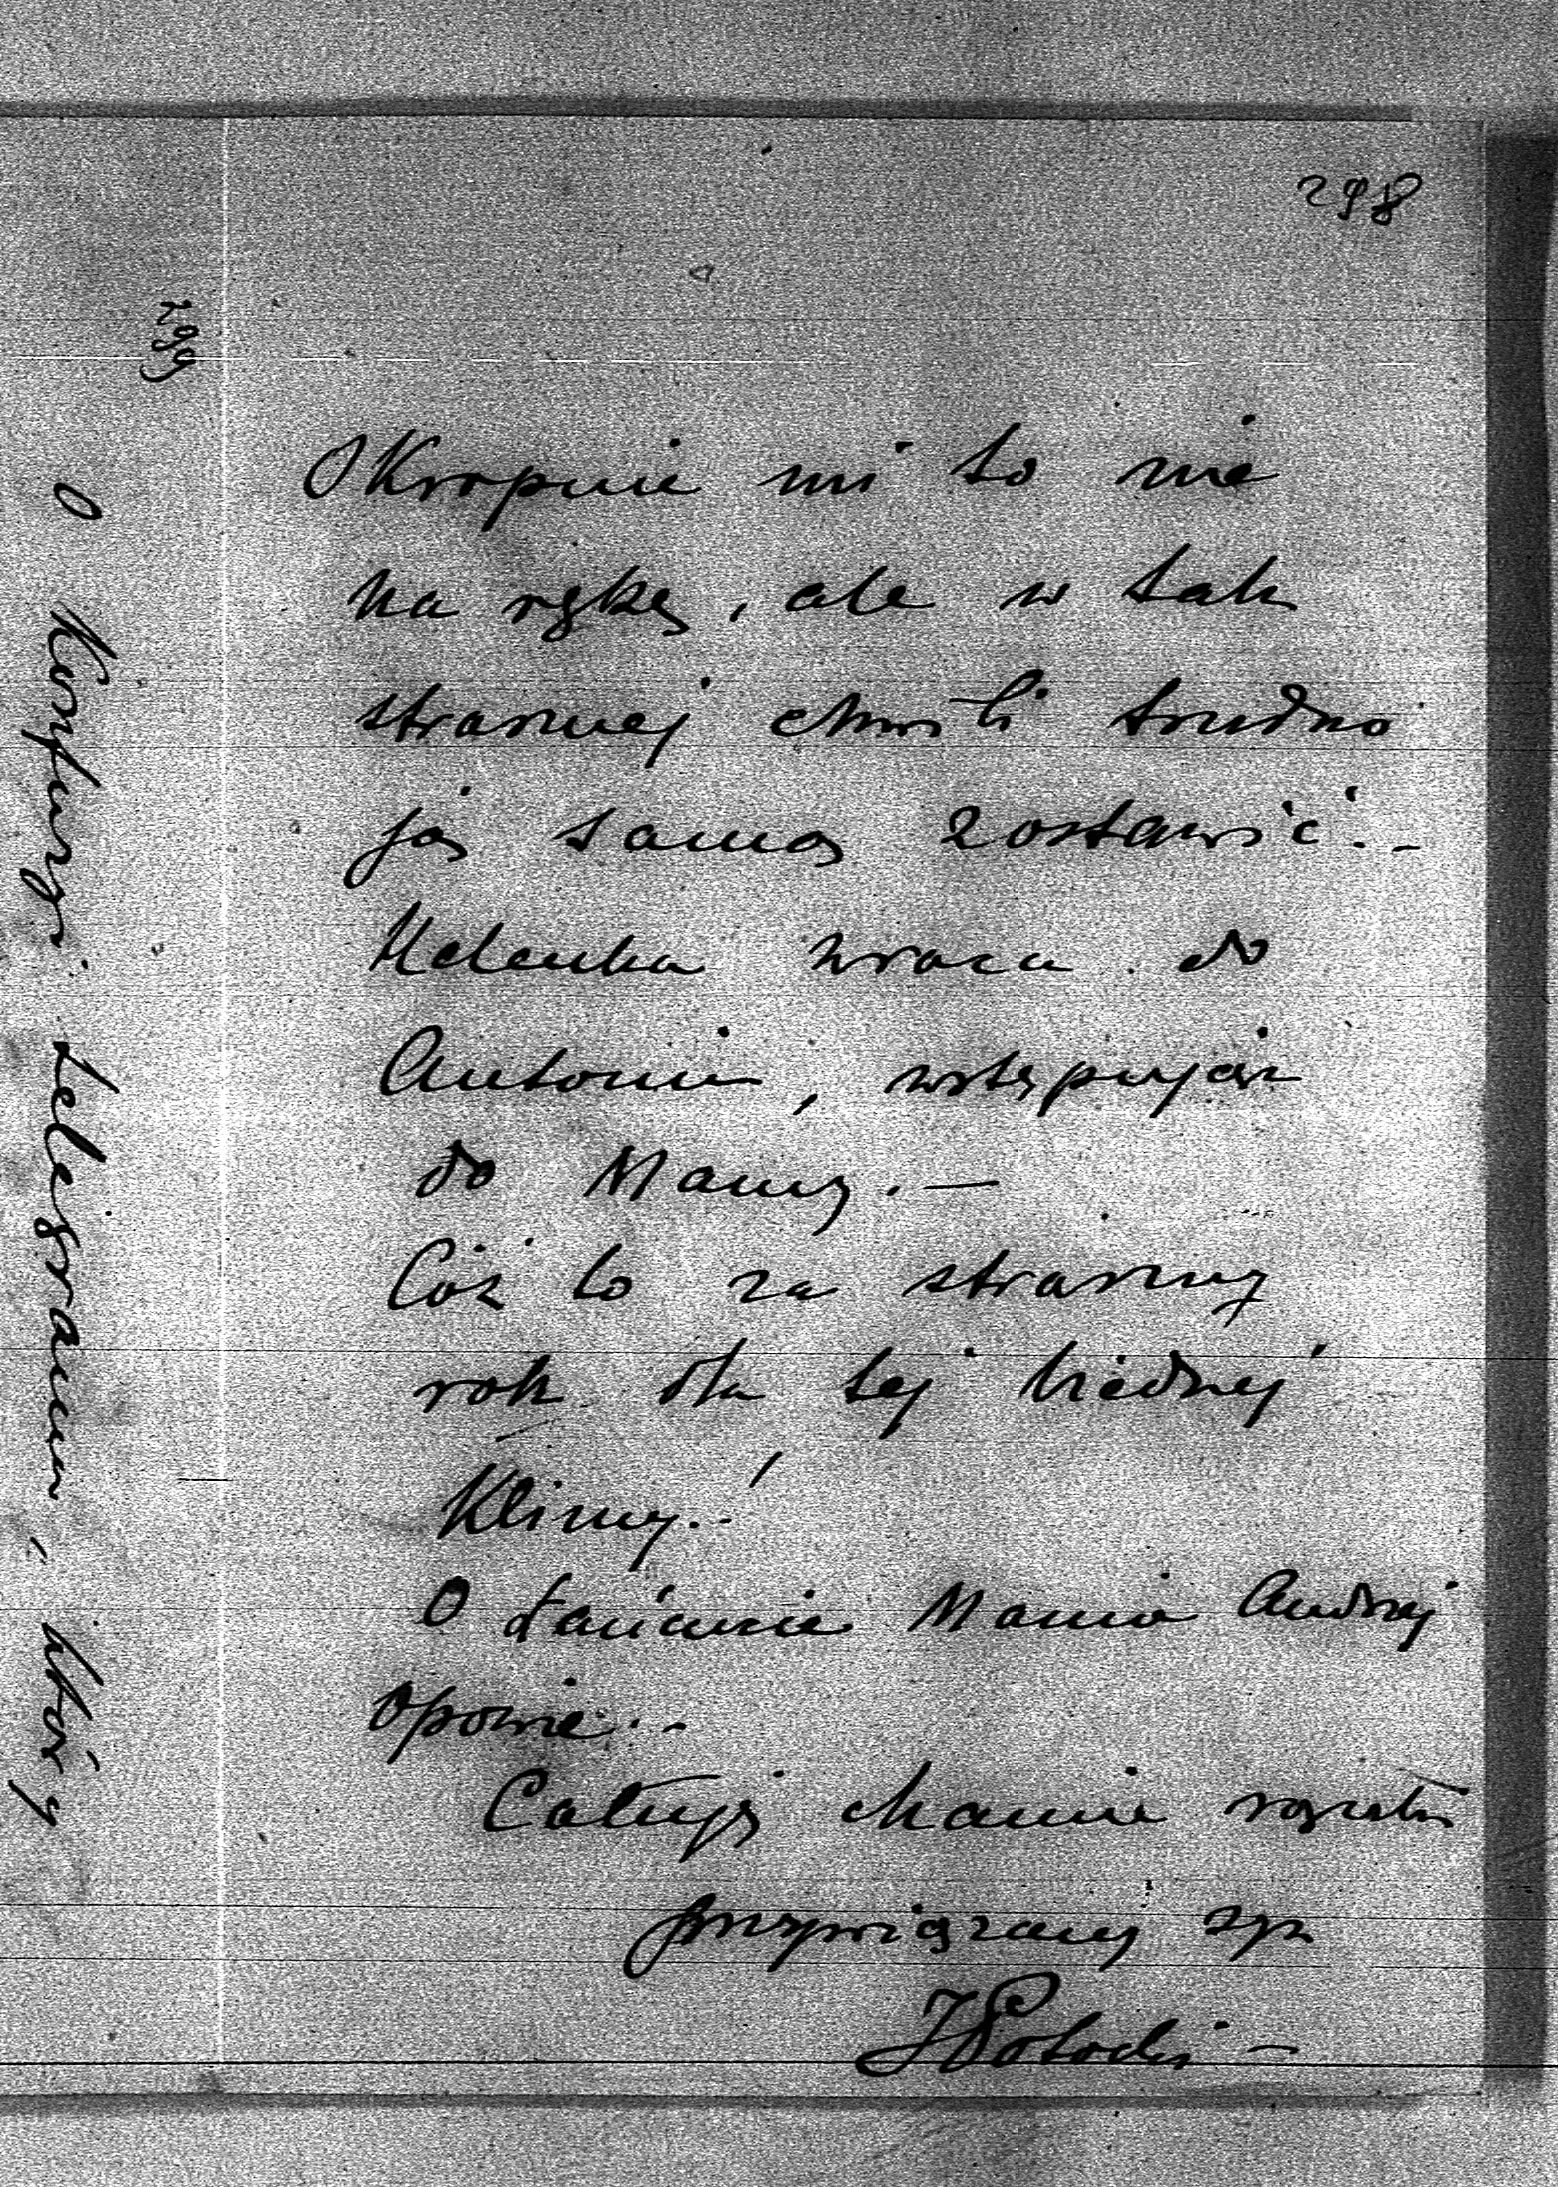 298
Okropnie mi to nie
na rękę, ale w tak
strasznej chwili trudno
ją samą zostawić. -
Helenka wraca do
Antonin, wstępując
do Mamy. —
Cóż to za straszny
rok dla tej biednej
Klimy..!
O Łańcucie Mamie Andrzej
opowie. -
Całuję Mamie rączki
przywiązany syn
JPotocki -
299
O Konfuzji telegramu, który